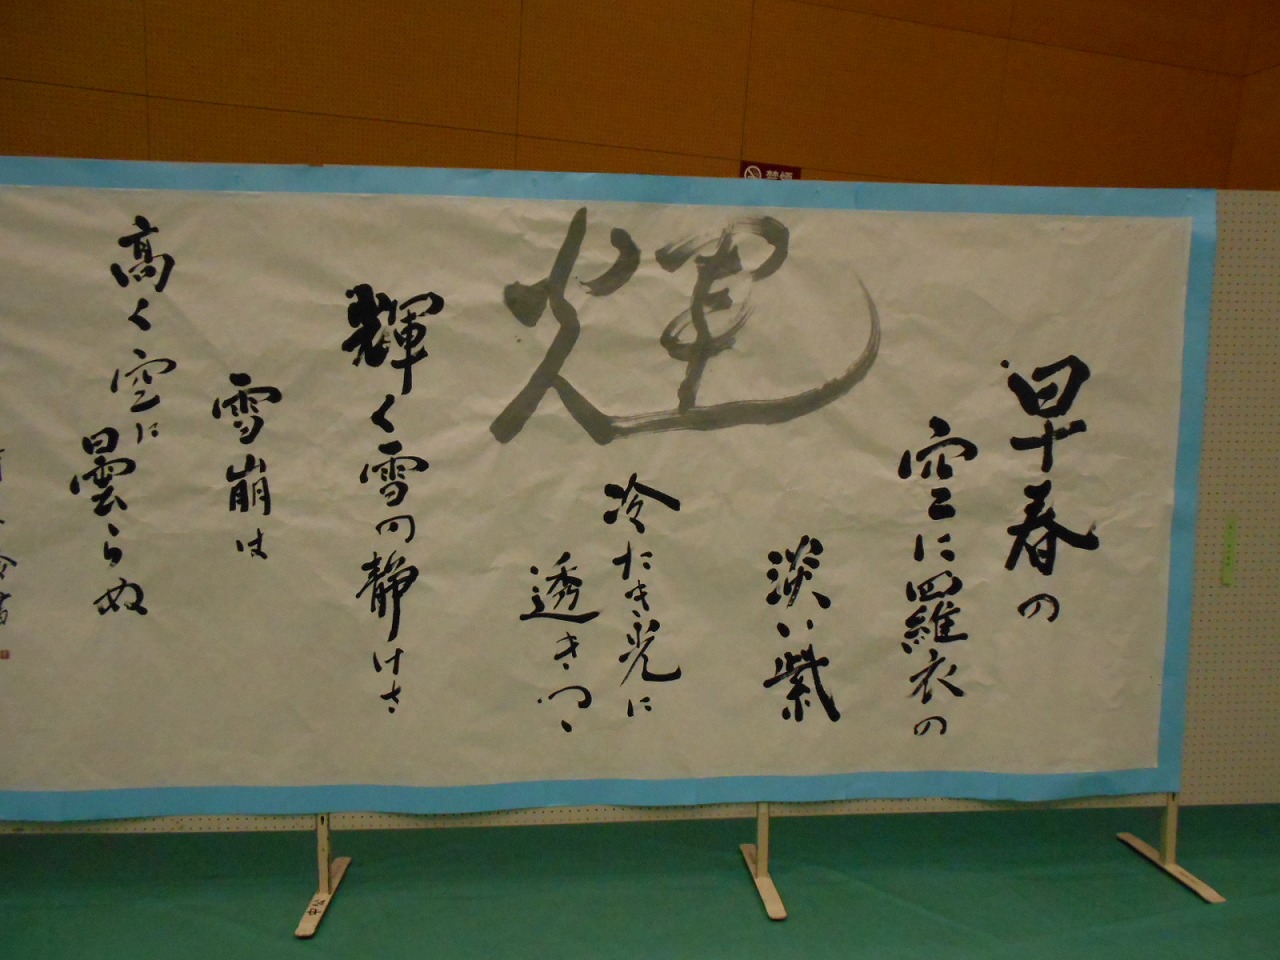 早春の
空に羅衣の
淡い紫
輝
冷たき光に
透きつゝ
輝く雪の静けさ
雪崩は
高く空に
曇らぬ
禁煙